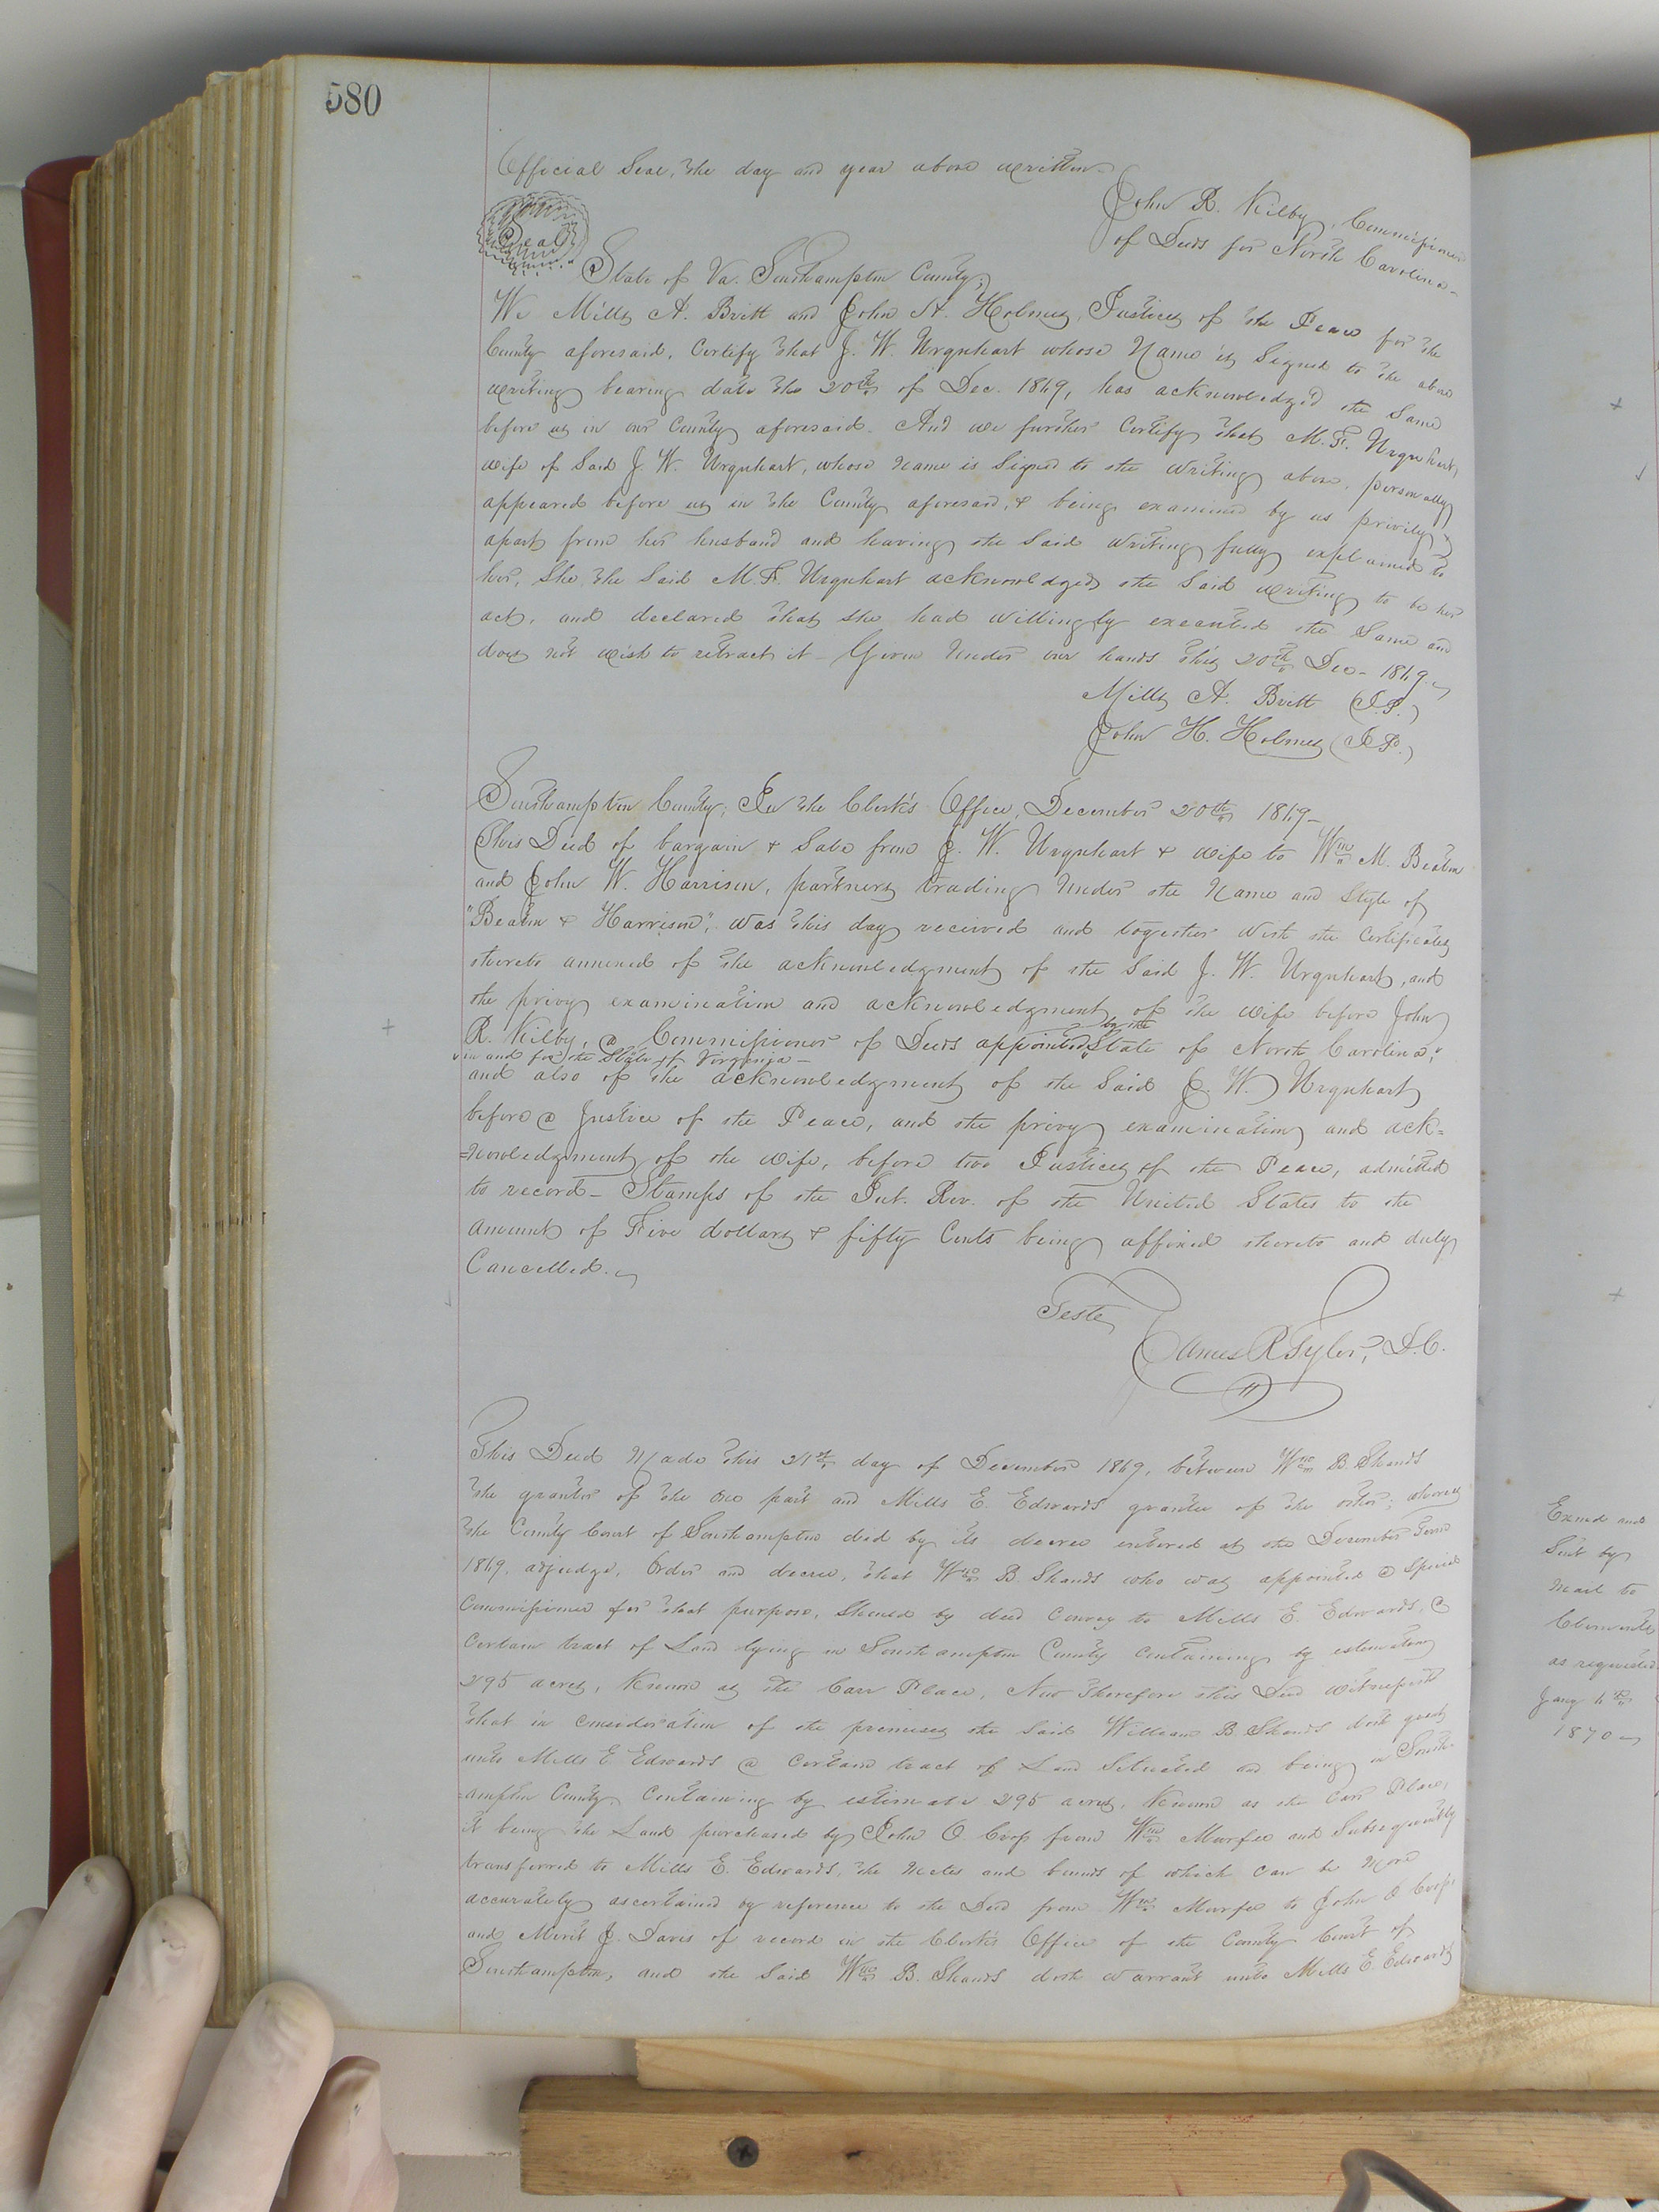 580
Official Seal, the day and year above written
John R. Kilby, Commissioner
of Deeds for North Carolina
Seal
State of Va. Southampton County,
We Mills A. Britt and John H. Holmes, Justices of the Peace for the
County aforesaid, Certify that J. W. Urquhart whose Name is Signed to the above
writing bearing date the 20th of Dec. 1869, has acknowledged the Same
before us in our County aforesaid. And we further Certify that M. F. Urquhart,
wife of Said J. W. Urquhart, whose name is Signed to the Writing above, personally
appeared before us in the County aforesaid, & being examined by us privily &
apart from her husband and having the Said Writing fully explained to
her, She, the Said M. F. Urquhart acknowledged the Said writing to be her
act, and declared that She had willingly executed the Same and
does not wish to retract it - Given Under our hands this 20th Dec - 1869.
Mills A. Britt (J.P.)
John H. Holmes (J.P.)
Southampton County; In the Clerk's Office, December 20th 1869-
This Deed of bargain & Sale from J. W. Urquhart & wife to Wm M. Beaton
and John W. Harrison, partners trading Under the Name and Style of
"Beaton & Harrison", was this day received and together with the Certificates
thereto annexed of the acknowledgment of the Said J. W. Urquhart, and
the privy examination and acknowledgment of the wife before John
R. Kilby, a Commissioner of Deeds appointed by the State of North Carolina,
in and for the State of Virginia -
and also of the acknowledgment of the Said J. W. Urquhart
before a Justice of the Peace, and the privy examination and ack=
=nowledgment of the wife, before two Justices of the Peace, admitted
to record - Stamps of the Int. Rev. of the United States to the
amount of Five dollars & fifty Cents being affixed thereto and duly
Cancelled.
Teste
James R Tyler, D.C.
This Deed Made this 21st day of December 1869, between Wm B. Shands
the grantor of the one part and Mills E. Edwards grantee of the other; whereas
the County Court of Southampton did by its decree entered at the December Term
1869, adjudge, Order and decree, that Wm B. Shands who was appointed a Special
Commissioner for that purpose, Should by deed Convey to Mills E. Edwards, a
Certain tract of Land lying in Southampton County Containing by estimation
295 acres, Known as the Carr Place, Now Therefore this Deed witnesseth
that in Consideration of the premises the Said William B Shands doth grant
unto Mills E Edwards a Certain tract of Land Situated and being in South-
=ampton County, Containing by estimate 295 acres, Known as the Carr Place,
it being the Land purchased by John O from Wm Murfee and Subsequently
transferred to Mills E. Edwards, the metes and bounds of which can be more
accurately ascertained by reference to the Deed from Wm Murfee to John O
and Merit J. Davis of record in the Clerk's Office of the County Court of
Southampton, and the Said Wm B. Shands doth warrant unto Mills E. Edwards
Exmd and
Sent by
mail to
as requested
Jany
1870